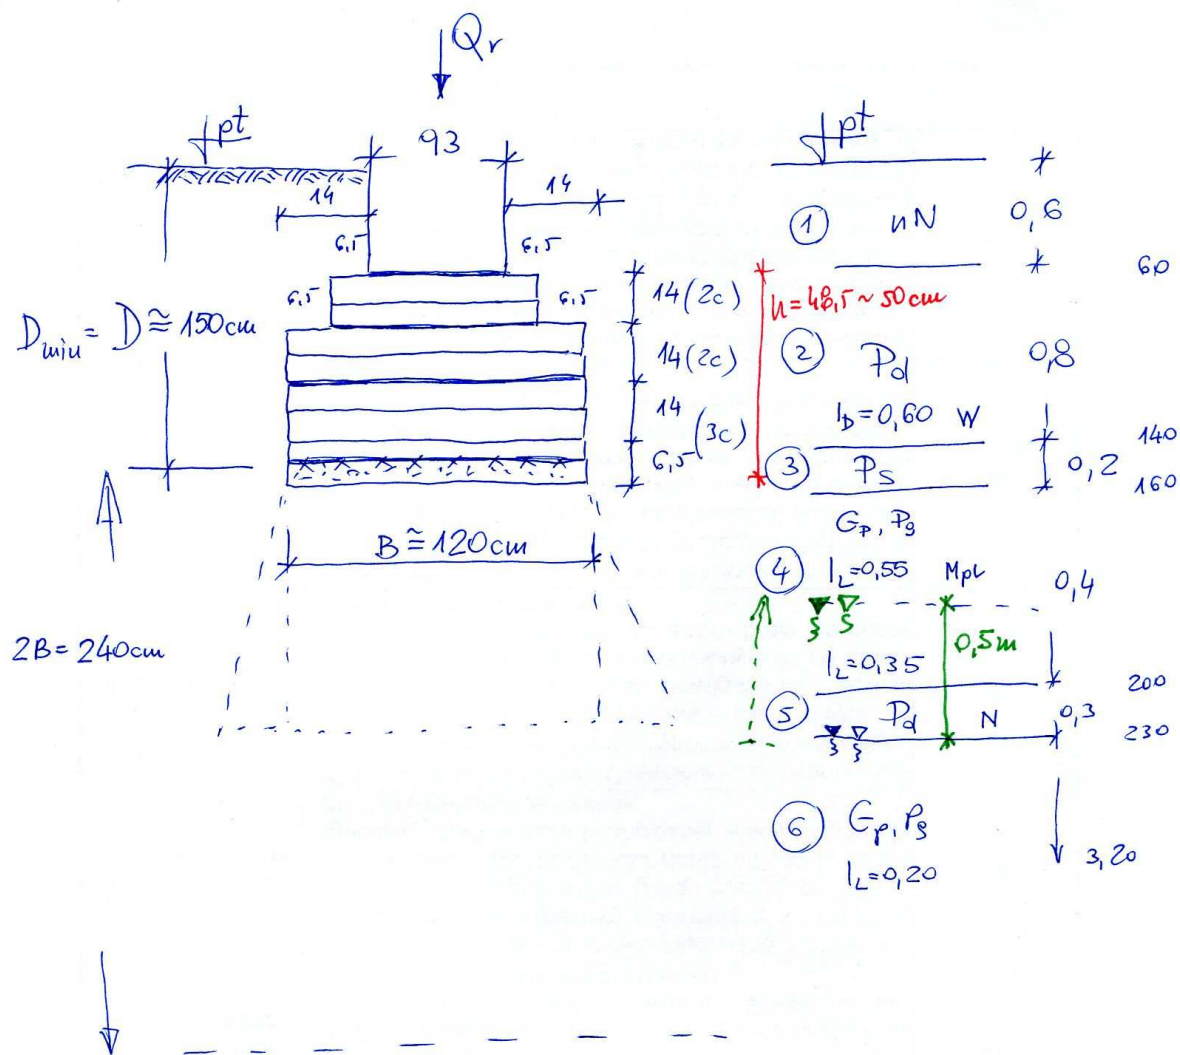 Qr
pt
93
14
14
6,5
6,5
6,5
6,5
Dmin = D ≅ 150cm
14(2c)
14(2c)
14
(3c)
6,5
h=48,5~50cm
B ≅ 120cm
2B = 240cm
pt
1 nN 0,6
60
2 Pd 0,8
ID=0,60 W
140
3 Ps 0,2
160
Gp, Pg
4 IL=0,55 Mpl 0,4
0,5m
IL=0,35
200
5 Pd N 0,3
230
6 Gp, Pg
IL=0,20
3,20